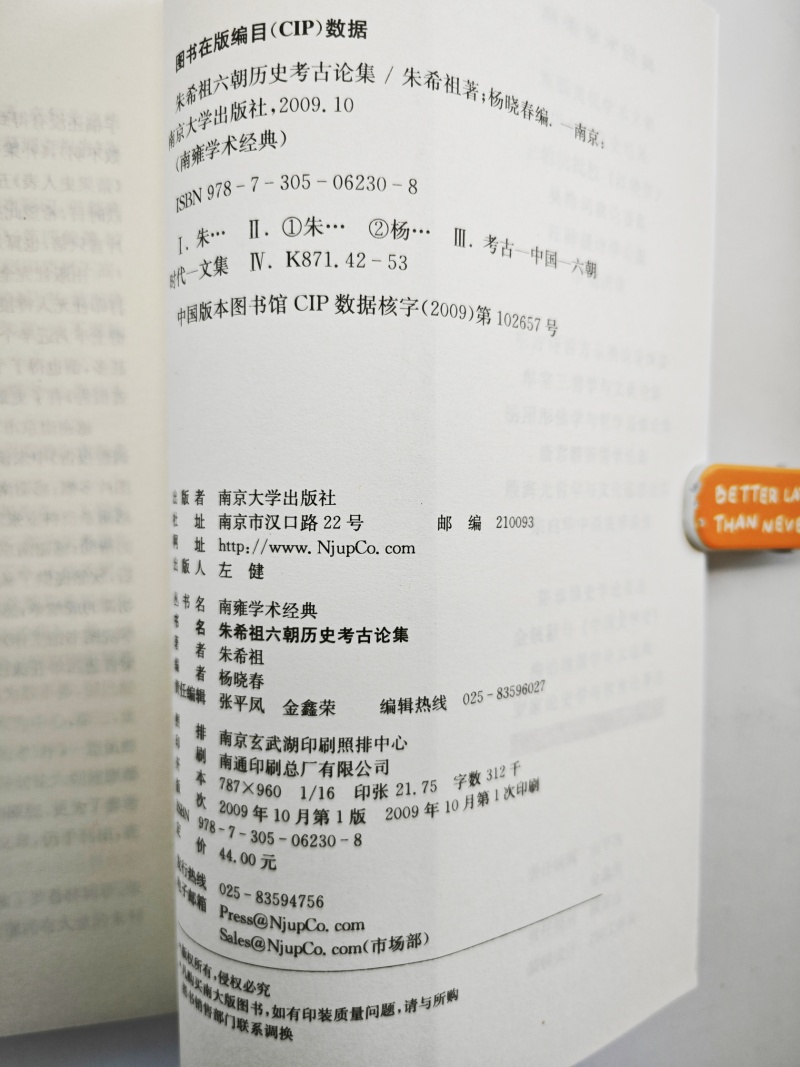 图书在版编目(CIP)数据
朱希祖六朝历史考古论集 / 朱希祖著;杨晓春编. —南京:
南京大学出版社,2009.10
(南雍学术经典)
ISBN 978-7-305-06230-8
Ⅰ.朱… Ⅱ.①朱… ②杨… Ⅲ.考古—中国—六朝
时代—文集 Ⅳ.K871.42-53
中国版本图书馆 CIP 数据核字(2009)第 102657 号
出版者 南京大学出版社
社 址 南京市汉口路 22 号 邮 编 210093
网 址 http://www.NjupCo.com
出版人 左 健
丛书名 南雍学术经典
书 名 朱希祖六朝历史考古论集
著 者 朱希祖
编 者 杨晓春
责任编辑 张平凤 金鑫荣 编辑热线 025-83596027
照 排 南京玄武湖印刷照排中心
印 刷 南通印刷总厂有限公司
开 本 787×960 1/16 印张 21.75 字数 312 千
版 次 2009 年 10 月第 1 版 2009 年 10 月第 1 次印刷
ISBN 978-7-305-06230-8
定 价 44.00 元
发行热线 025-83594756
电子邮箱 Press@NjupCo.com
Sales@NjupCo.com(市场部)
·版权所有,侵权必究
·凡购买南大版图书,如有印装质量问题,请与所购
图书销售部门联系调换
BETTER LA
THAN NEVE